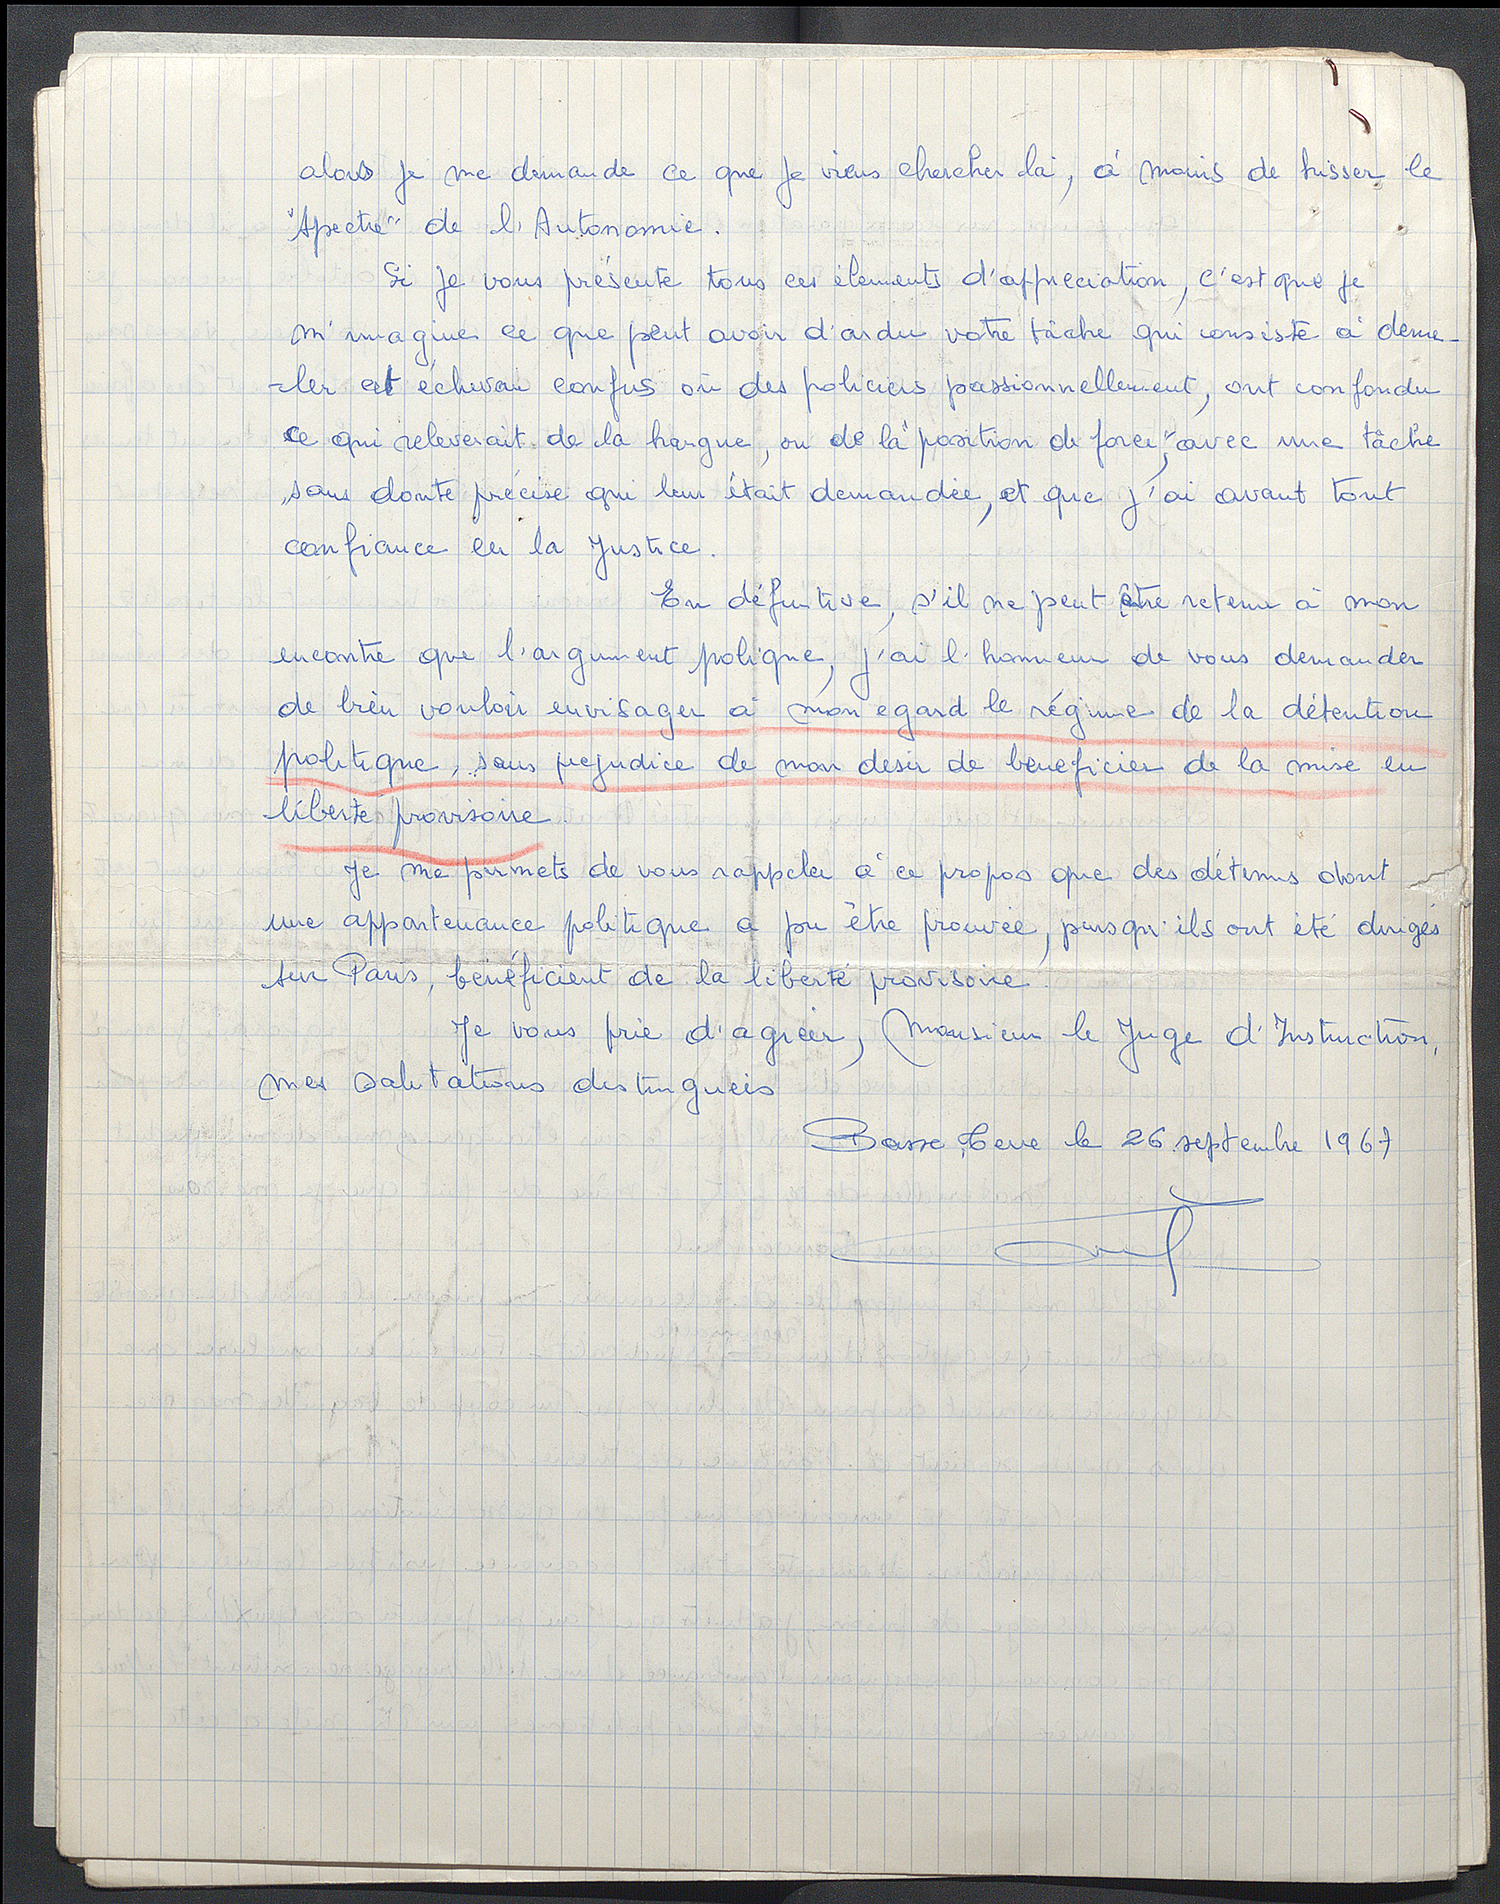 alors je me demande ce que je viens chercher là, à moins de hisser le
"spectre" de l'Autonomie.
Si je vous présente tous ces élements d'appreciation, c'est que je
m'imagine ce que peut avoir d'ardu votre tâche qui consiste à deme-
-ler cet écheveau confus où des policiers passionnellement, ont confondu
ce qui releverait de la hargne, ou de la "position de force", avec une tâche
sans doute précise qui leur était demandée, et que j'ai avant tout
confiance en la Justice.
En définitive, s'il ne peut être retenu à mon
encontre que l'argument polique, j'ai l'honneur de vous demander
de bien vouloir envisager à mon egard le régime de la détention
politique, sans prejudice de mon desir de beneficier de la mise en
liberté provisoire.
Je me permets de vous rappeler à ce propos que des détenus dont
une appartenance politique a pu être prouvée, puisqu'ils ont été dirigés
sur Paris, bénéficient de la liberté provisoire.
Je vous prie d'agréer, Monsieur le Juge d'Instruction,
mes salutations distinguées
Basse Terre le 26 septembre 1967